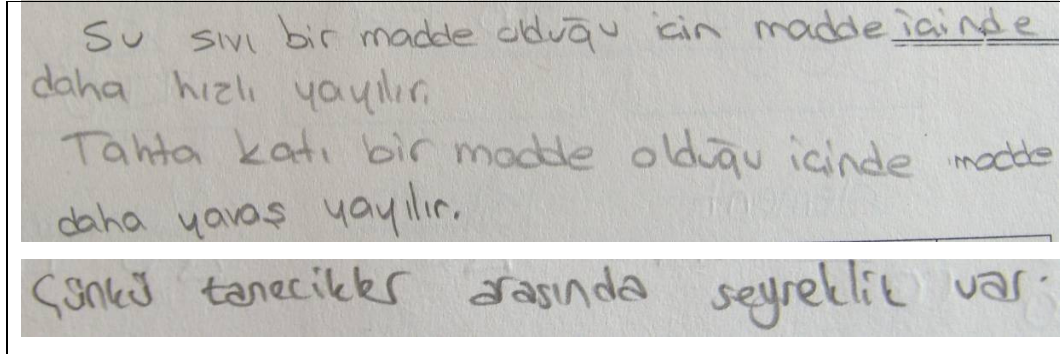 Su sıvı bir madde olduğu için madde içinde
daha hızlı yayılır.
Tahta katı bir madde olduğu içinde madde
daha yavaş yayılır.
Çünkü tanecikler arasında seyreklik var.